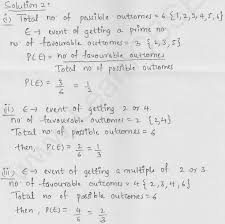 Solution 2:
(i) Total no of possible outcomes = 6 {1,2,3,4,5,6}
E → event of getting a prime no
no of favourable outcomes = 3 {2,3,5}
P(E) = no of favourable outcomes
Total no of possible outcomes
P(E) = 3/6 = 1/2
ii) E → event of getting 2 or 4
no of favourable outcomes = 2 {2,4}
Total no of possible outcomes = 6
then, P(E) = 2/6 = 1/3
iii) E → event of getting a multiple of 2 or 3
no of favourable outcomes = 4 {2,3,4,6}
Total no of possible outcomes = 6
then, P(E) = 4/6 = 2/3